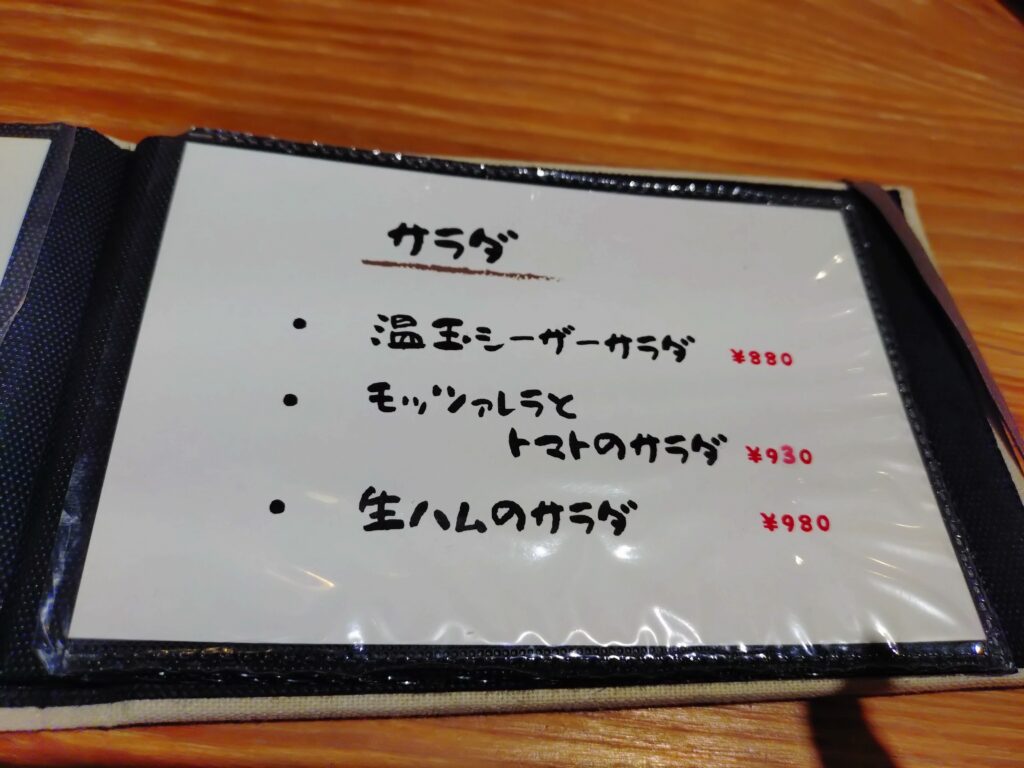 サラダ
・ 温玉シーザーサラダ ¥880
・ モッツァレラと
トマトのサラダ ¥930
・ 生ハムのサラダ ¥980